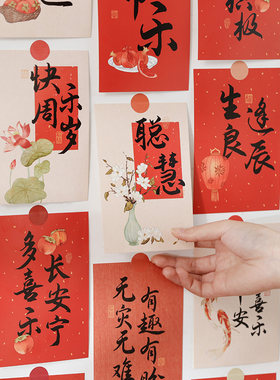 乐
积极
快乐
周岁
聪慧
生逢
良辰
多喜乐
长安宁
有趣有盼
无灾无难
喜乐
安